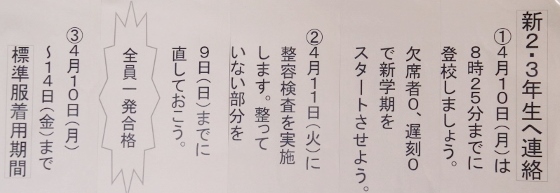 新2・3年生へ連絡
①4月10日(月)は
8時25分までに
登校しましょう。
欠席者0、遅刻0
で新学期を
スタートさせよう。
②4月11日(火)に
整容検査を実施
します。整って
いない部分を
9日(日)までに
直しておこう。
全員一発合格
③4月10日(月)
～14日(金)まで
標準服着用期間